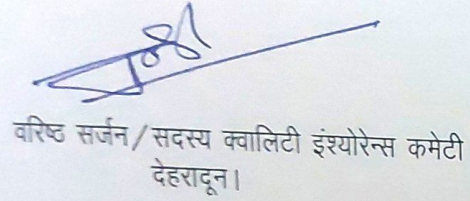 वरिष्ठ सर्जन/सदस्य क्वालिटी इंश्योरेन्स कमेटी
देहरादून।